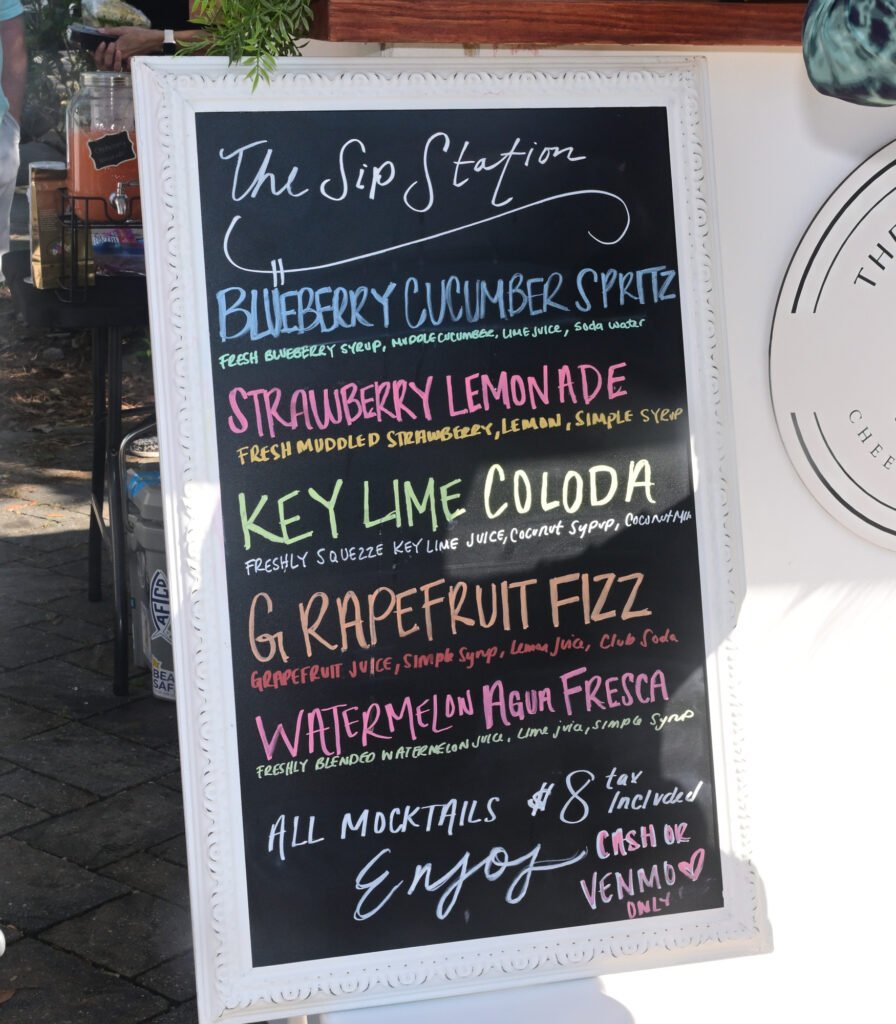 The Sip Station
BLUEBERRY CUCUMBER SPRITZ
FRESH BLUEBERRY SYRUP, MUDDLE CUCUMBER, LIME JUICE, Soda water
STRAWBERRY LEMONADE
FRESH MUDDLED STRAWBERRY, LEMON, SIMPLE SYRUP
KEY LIME COLODA
FRESHLY SQUEZZE KEY LIME JUICE, Coconut Sypup, COCONUT Milk
GRAPEFRUIT FIZZ
GRAPEFRUIT JUICE, Simple Syrup, Lemon Juice, Club Soda
WATERMELON AGUA FRESCA
FRESHLY BLENDED WATERMELON JUICE, Lime juice, Simple Syrup
ALL MOCKTAILS $8 tax
Included
Enjoy
CASH OR
VENMO
ONLY
THE
CHEE
AFTCO
BEA
SAF